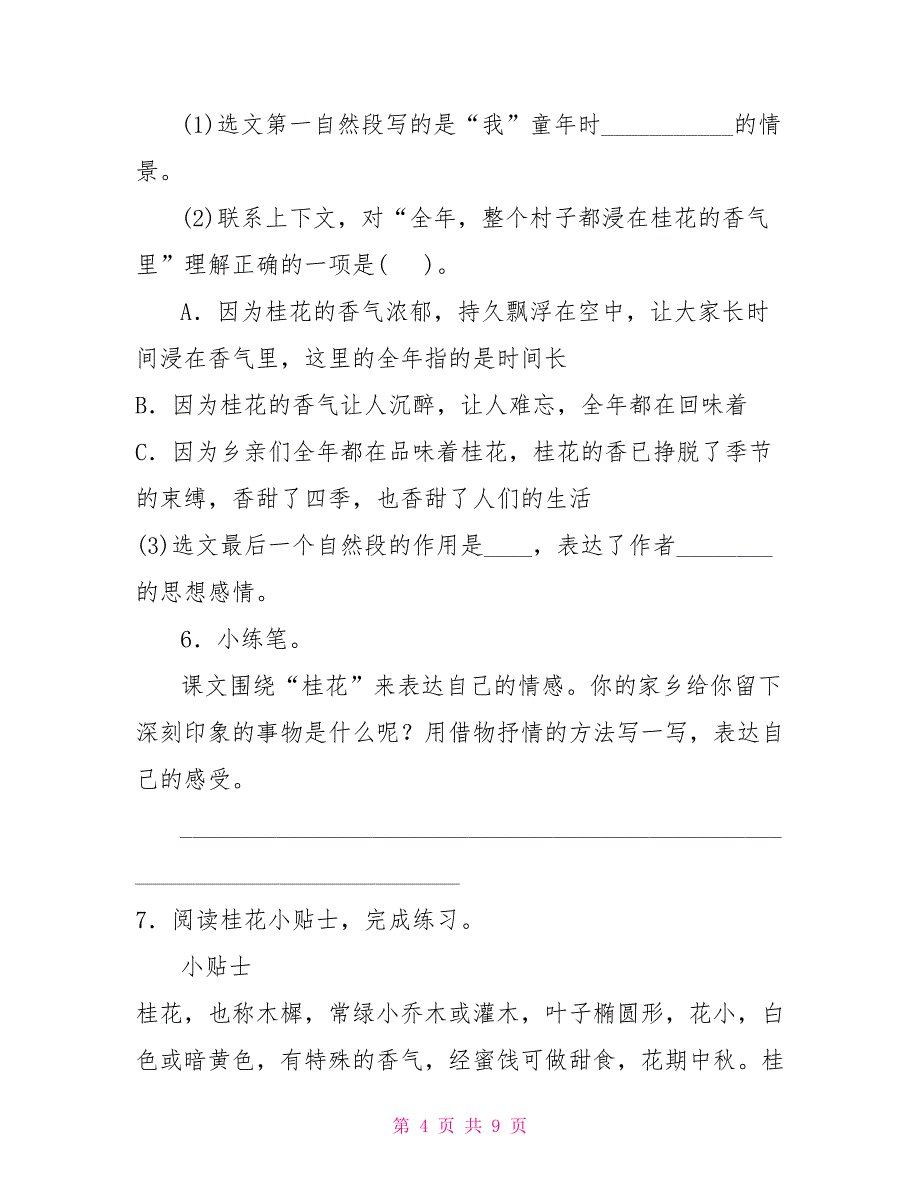 (1)选文第一自然段写的是“我”童年时___________的情
景。
(2)联系上下文，对“全年，整个村子都浸在桂花的香气
里”理解正确的一项是(   )。
A．因为桂花的香气浓郁，持久飘浮在空中，让大家长时
间浸在香气里，这里的全年指的是时间长
B．因为桂花的香气让人沉醉，让人难忘，全年都在回味着
C．因为乡亲们全年都在品味着桂花，桂花的香已挣脱了季节
的束缚，香甜了四季，也香甜了人们的生活
(3)选文最后一个自然段的作用是____，表达了作者________
的思想感情。
6．小练笔。
课文围绕“桂花”来表达自己的情感。你的家乡给你留下
深刻印象的事物是什么呢？用借物抒情的方法写一写，表达自
己的感受。
__________________________________________________
___________________________
7．阅读桂花小贴士，完成练习。
小贴士
桂花，也称木樨，常绿小乔木或灌木，叶子椭圆形，花小，白
色或暗黄色，有特殊的香气，经蜜饯可做甜食，花期中秋。桂
第 4 页 共 9 页